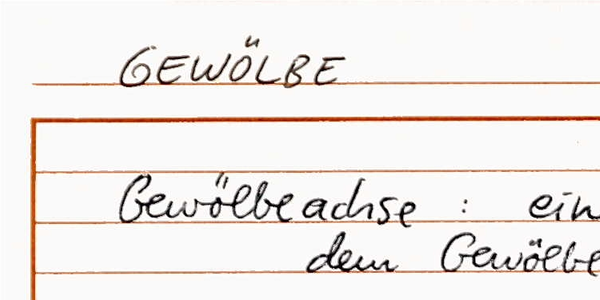 GEWÖLBE
Gewölbeachse : ein
dem Gewölbe